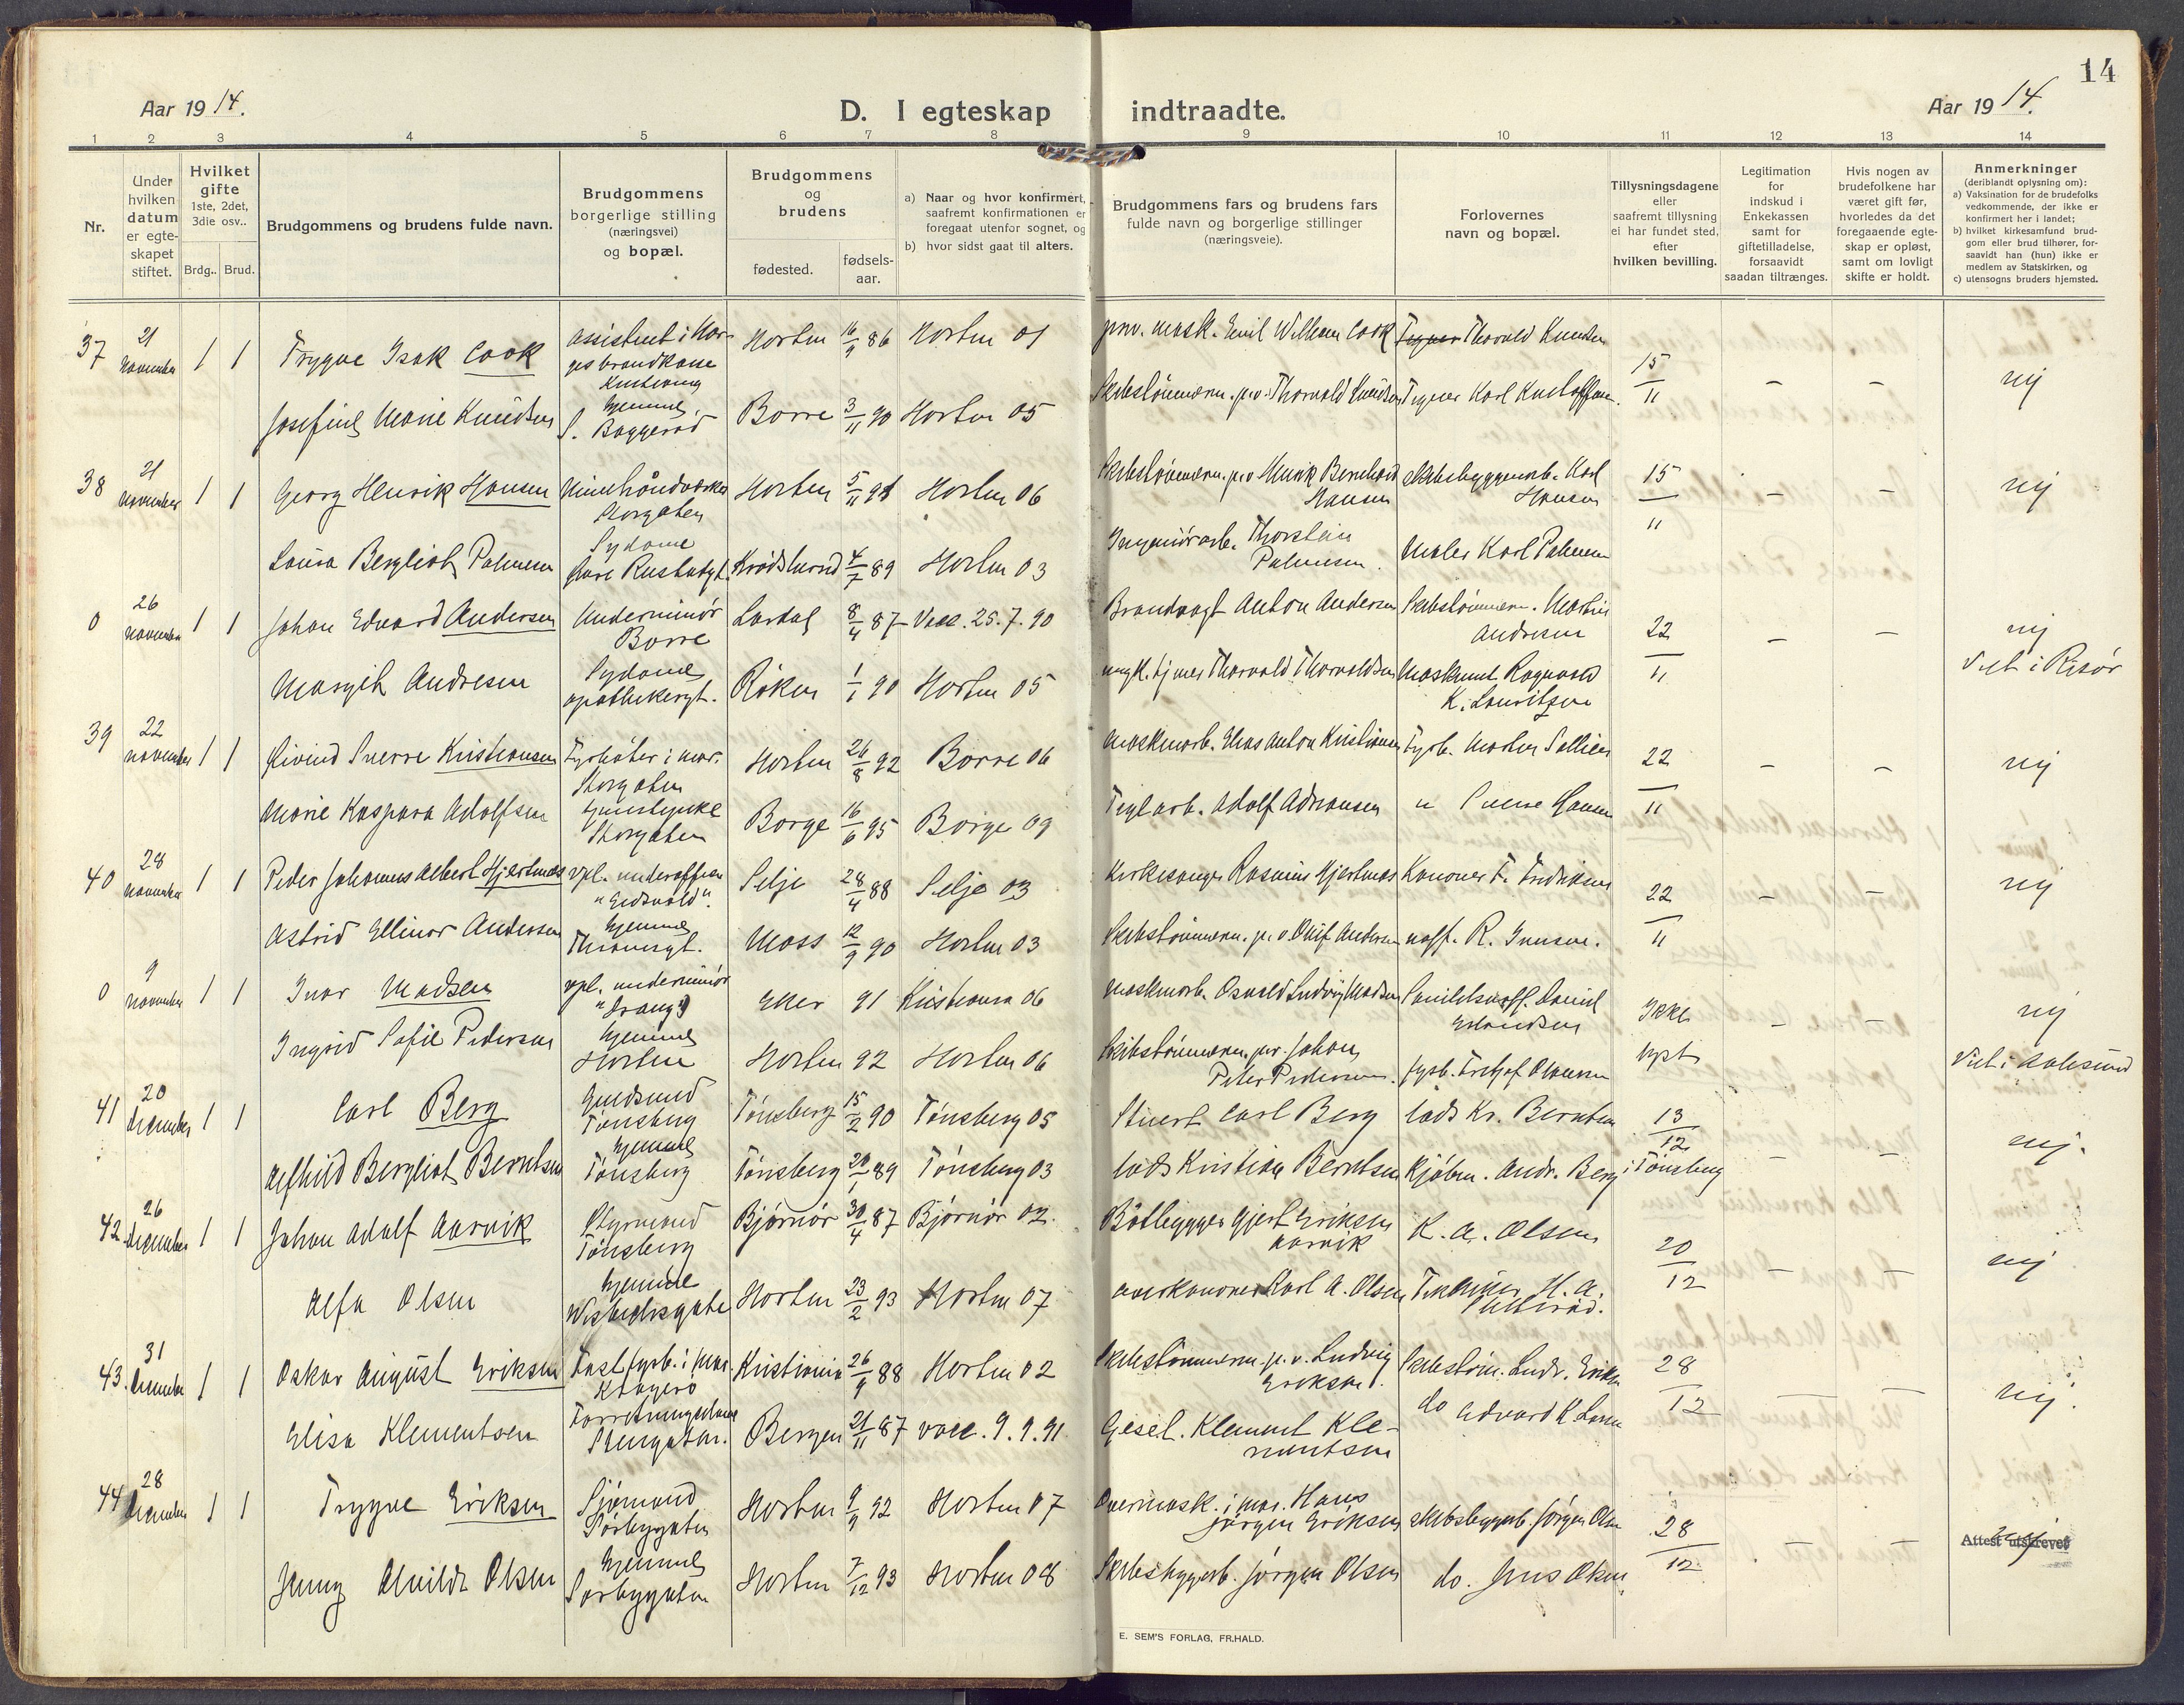 14
Aar 1914.
D. I egteskap indtraadte.
Aar 1914.
1 2 3 4 5 6 7 8 9 10 11 12 13 14
Nr.
Under hvilken datum er egteskapet stiftet.
Hvilket gifte 1ste, 2det, 3die osv..
Brdg.. Brud.
Brudgommens og brudens fulde navn.
Brudgommens borgerlige stilling (næringsvei) og bopæl.
Brudgommens og brudens
fødested.
fødsels-aar.
a) Naar og hvor konfirmert, saafremt konfirmationen er foregaat utenfor sognet, og
b) hvor sidst gaat til alters.
Brudgommens fars og brudens fars fulde navn og borgerlige stillinger (næringsveie).
Forlovernes navn og bopæl.
Tillysningsdagene eller saafremt tillysning ei har fundet sted, efter hvilken bevilling.
Legitimation for indskud i Enkekassen samt for giftetilladelse, forsaavidt saadan tiltrænges.
Hvis nogen av brudefolkene har været gift før, hvorledes da det foregaaende egteskap er opløst, samt om lovligt skifte er holdt.
Anmerkninger (deriblandt oplysning om):
a) Vaksination for de brudefolks vedkommende, der ikke er konfirmert her i landet;
b) hvilket kirkesamfund brudgom eller brud tilhører, forsaavidt han (hun) ikke er medlem av Statskirken, og
c) utensogns bruders hjemsted.
37 21 november 1 1 Trygve Isak Cook assistent i Norges brandkasse Horten 16/9 86 Horten 01 Emil William Cook Thorvald Knudsen 15/11 – – nei
Josefine Marie Knudsen hjemme S. Baggerød Borre 3/11 90 Horten 05 Skibstømmerm. p.v. Thorvald Knudsen Tegner Karl Kristoffersen.
38 21 november 1 1 Georg Henrik Hansen Minehåndverker Storgaten Horten 5/11 91 Horten 06 Skibstømmerm. p.v. Henrik Bernhard Hansen Skibsbyggerarb. Karl Hansen 15/11 – – nei
Laura Bergliot Palmesen Sydame Krødsherad 4/7 89 Horten 03 Ingeniørarb. Thorstein Palmesen. Maler Karl Palmesen
0 26 november 1 1 Johan Edvard Andersen Underminør Borre Lardal 8/4 87 Vacc. 25.7.90 Brandvagt Anton Andersen Skibstømmerm. Martin Andresen 22/11 – – nei
Viet i Risør
Margith Andresen Sydame apothekergt. Røken 1/1 90 Horten 05 Thorvald Thorvaldsen Maskinist Ragnvald K. Lauritzen
39 22 november 1 1 Øivind Sverre Kristiansen Fyrbøter i mar. Storgaten Horten 26/8 92 Borre 06 Maskinarb. Elias Anton Kristiansen Fyrb. Martin 22/11 – – nei
Marie Kaspara Adolfsen Storgaten Borge 16/6 95 Borge 09 Teglarb. Adolf Adriansen " Sverre Hansen
40 28 november 1 1 Peder Johannes Albert Hjertnæs vpl. underofficer "Eidsvold". Selje 28/4 88 Selje 03 Kirkesanger Rasmus Hjertnæs Kanoner F. Fredriksen 22/11 – – nei
Astrid Ellinor Andersen hjemme Thranesgt. Moss 12/9 90 Horten 03 Skibstømmerm. p.v. Andersen uoff. R. Iversen.
0 9 november 1 1 Ivar Madsen vpl. underminør "Draug" Eker 91 Kristiania 06 Maskinarb. Osvald Ludvig Madsen Daniel Erlandsen Ikke lyst – – nei
Viet i Aalesund
Ingrid Sofie Pedersen hjemme Horten Horten 92 Horten 06 Skibstømmerm. p.v. Johan Peter Pedersen. fyrb. Fritjof Olausen
41 20 december 1 1 Carl Berg Guldsmed Tønsberg Tønsberg 15/2 90 Tønsberg 05 Stuert Carl Berg Lods Kr. Berntsen 13/12 i Tønsberg – – nei.
Alfhild Bergliot Berntsen hjemme Tønsberg Tønsberg 20/1 89 Tønsberg 03 Lods Kristian Berntsen Kjøbm. Andr. Berg
42. 26 december 1 1 Johan Adolf Aarvik Styrmand Tønsberg Bjørnør 30/4 87 Bjørnør 02. Båtbygger Gjert Eriksen Aarvik K. A. Olsen 20/12 – – nei
Alfa Olsen hjemme Wisbechsgate Horten 23/2 93 Horten 07 overkanoner Karl A. Olsen H. A.
43. 31 december 1 1 Oskar August Eriksen Fast fyrb. i mar. Kragerø Kristiania 26/9 88 Horten 02 Skibstømmerm. p.v. Ludvig Eriksen. Skibstøm. Ludv. Eriksen 28/12 – – nei.
Elisa Klementsen Forretningsdame Storgaten. Bergen 21/11 87 vacc. 9.9.91. Gesel. Klement Klementsen do Edvard K. Larsen
44 28 december 1 1 Trygve Eriksen Sjømand Sørbygaten Horten 9/9 92 Horten 07 Overmask. i mar. Hans Jørgen Eriksen Skibsbyggerb. Jørgen Olsen 28/12 – – nei
Attest utskrevet
Jenny Alvilde Olsen hjemme Sørbygaten Horten 7/12 93 Horten 08 Skibsbyggerb. Jørgen Olsen do. Jens Olsen.
E. SEM'S FORLAG, FR.HALD.